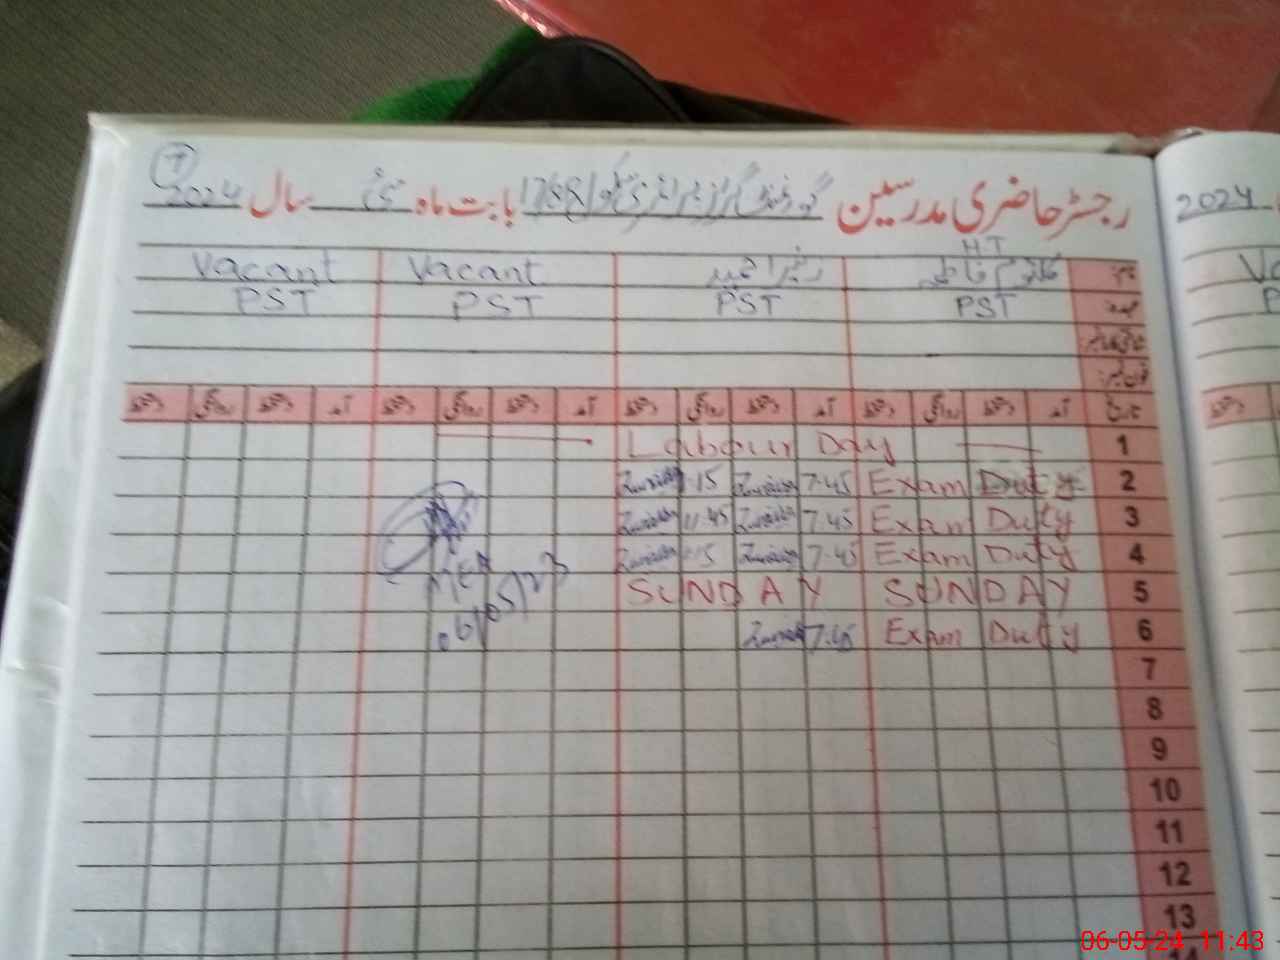 رجسٹر حاضری مدرسین گورنمنٹ گرلز پرائمری بابت ماہ مئی سال 2024
7
2024
H.T
نام: کلثوم فاطمہ Vacant Vacant
عہدہ: PST PST PST PST
فون نمبر:
تاریخ آمد دستخط روانگی دستخط آمد دستخط روانگی دستخط آمد دستخط روانگی دستخط آمد دستخط روانگی دستخط
1 Labour Day
2 Exam Duty 7.45 1.15
3 Exam Duty 7.45 11.45
4 Exam Duty 7.45 1.15
5 SUNDAY SUNDAY
6 Exam Duty 7.45
MEA
06/05/23
7
8
9
10
11
12
13
14
06-05-24 11:43